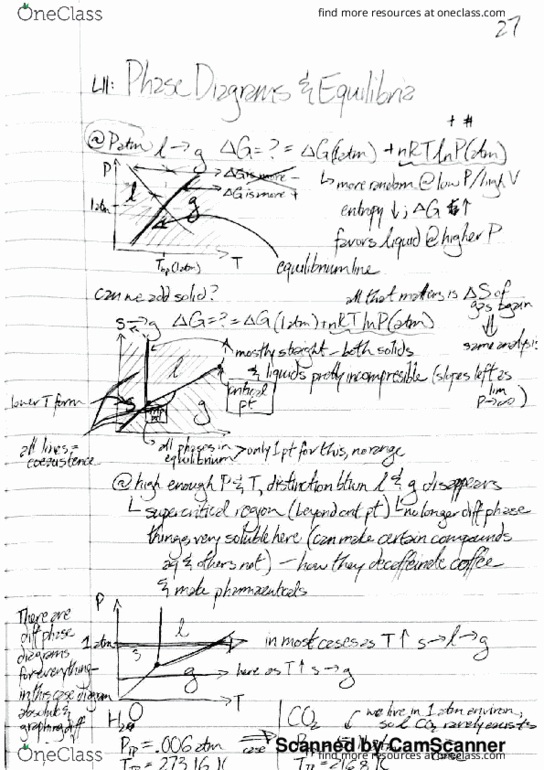 OneClass
find more resources at oneclass.com
27
L11: Phase Diagrams & Equilibria
+ #
@ P atm l → g ΔG = ? = ΔG(1atm) + nRT ln P(atm)
P
ΔG is more -
ΔG is more +
↳ more random @ low P/high V
l
g
1 atm
entropy ↓; ΔG ↑
favors liquid @ higher P
T
equilibrium line
can we add solid?
all that matters is ΔS of
gas again
s → g ΔG = ? = ΔG(1atm) + nRT ln P(atm)
⇓
same analysis
mostly straight - both solids
& liquids pretty incompressible (slopes left as
lim
P→∞)
l
critical
pt
g
lower T form
all lines =
coexistence
all phases in
equilibrium > only 1 pt for this, no range
@ high enough P & T, distinction btwn l & g disappears
↳ supercritical region (beyond crit pt) ↳ no longer diff phase
things very soluble here (can make certain compounds
aq & others not) - how they decaffeinate coffee
& make pharmaceuticals
There are
diff phase
diagrams
for everything -
in this case diagram
P
l
1 atm
s
in most cases as T↑ s→l→g
g
here as T↑ s→g
T
H₂O
CO₂
we live in 1 atm environ,
sol CO₂ rarely exists
= .006 atm
case
Scanned by CamScanner
OneClass
find more resources at oneclass.com
= 273.16 K